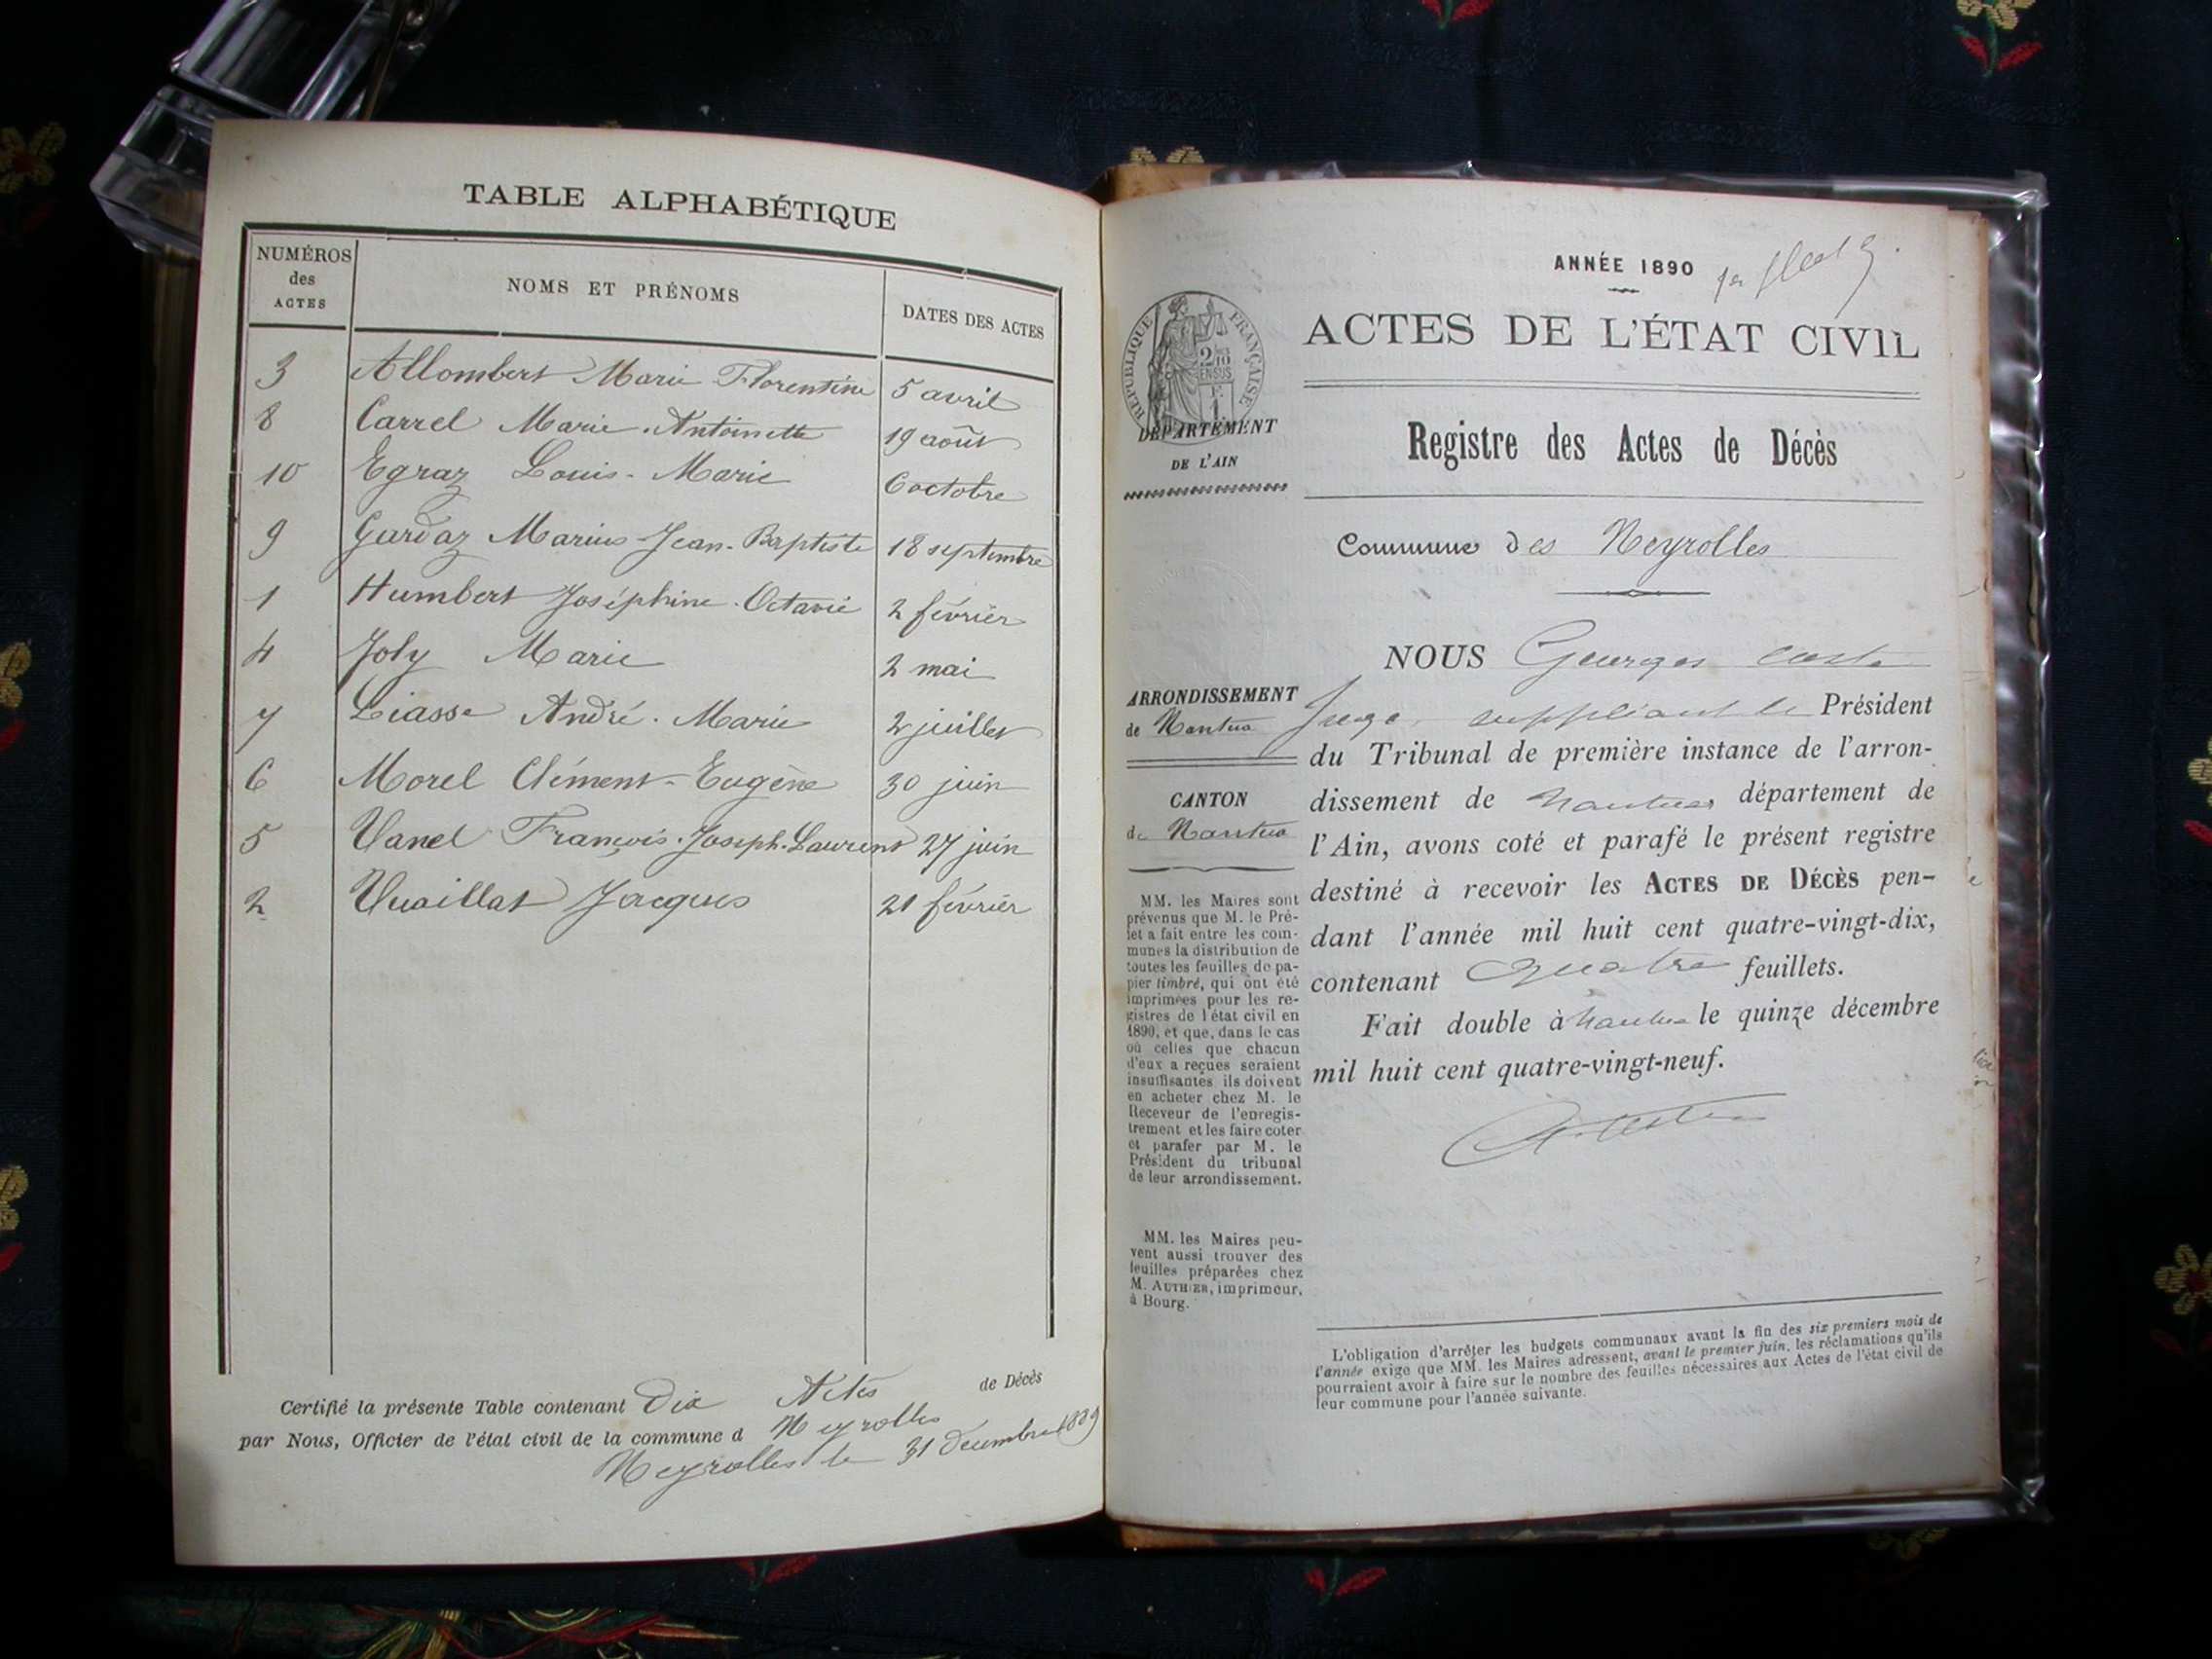 TABLE ALPHABÉTIQUE
NUMÉROS des ACTES NOMS ET PRÉNOMS DATES DES ACTES
3 Allombert Marie Florentine 5 avril
8 Carrel Marie-Antoinette 19 août
10 Egraz Louis-Marie 6 octobre
9 Gardaz Marius-Jean-Baptiste 18 septembre
1 Humbert Joséphine-Octavie 2 février
4 Joly Marie 2 mai
7 Liasse André-Marie 2 juillet
6 Morel Clément-Eugène 30 juin
5 Vanel François-Joseph-Laurent 27 juin
2 Vuaillat Jacques 21 février
Certifié la présente Table contenant Dix Actes de Décès
par Nous, Officier de l'état civil de la commune d Neyrolles
Neyrolles le 31 décembre 1889
ANNÉE 1890
ACTES DE L'ÉTAT CIVIL
RÉPUBLIQUE FRANÇAISE
DÉPARTEMENT
DE L'AIN
Registre des Actes de Décès
Commune des Neyrolles
ARRONDISSEMENT
de Nantua
CANTON
de Nantua
MM. les Maires sont
prévenus que M. le Pré-
fet a fait entre les com-
munes la distribution de
toutes les feuilles de pa-
pier timbré, qui ont été
imprimées pour les re-
gistres de l'état civil en
1890, et que, dans le cas
où celles que chacun
d'eux a reçues seraient
insuffisantes ils doivent
en acheter chez M. le
Receveur de l'enregis-
trement et les faire coter
et parafer par M. le
Président du tribunal
de leur arrondissement.
MM. les Maires peu-
vent aussi trouver des
feuilles préparées chez
M. AUTHIER, imprimeur,
à Bourg.
NOUS Georges
Juge suppléant le Président
du Tribunal de première instance de l'arron-
dissement de Nantua département de
l'Ain, avons coté et parafé le présent registre
destiné à recevoir les ACTES DE DÉCÈS pen-
dant l'année mil huit cent quatre-vingt-dix,
contenant quatre feuillets.
Fait double à Nantua le quinze décembre
mil huit cent quatre-vingt-neuf.
L'obligation d'arrêter les budgets communaux avant la fin des six premiers mois de
l'année exige que MM. les Maires adressent, avant le premier juin, les réclamations qu'ils
pourraient avoir à faire sur le nombre des feuilles nécessaires aux Actes de l'état civil de
leur commune pour l'année suivante.